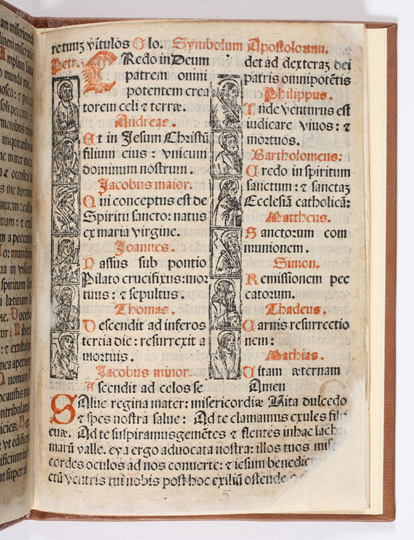 retunz vitulos Glo. Symbolum Apostolorum.
Petr.
CRedo in Deum
patrem omni
potentem crea
torem celi & terræ.
Andreas.
Et in Jesum Christū
filium eius : vnicum
dominum nostrum.
Jacobus maior.
Qui conceptus est de
Spiritu sancto: natus
ex maria virgine.
Joannes.
Passus sub pontio
Pilato crucifixus: mor
tuus : & sepultus.
Thomas.
Descendit ad inferos
tercia die : resurrexit a
mortuis.
Jacobus minor.
Ascendit ad celos se
det ad dexteraz dei
patris omnipotētis
Philippus.
Inde venturus est
iudicare viuos : &
mortuos.
Bartholomeus.
Credo in spiritum
sanctum : & sanctaz
Ecclesiā catholicā:
Mattheus.
Sanctorum com
munionem.
Simon.
Remissionem pec
catorum.
Thadeus.
Carnis resurrectio
nem :
Mathias.
Vitam æternam
Amen
SAlue regina mater: misericordiæ Vita dulcedo
& spes nostra salue : Ad te clamamus exules filii
euæ. Ad te suspiramus gemētes & flentes in hac lachri
marū valle. eya ergo aduocata nostra: illos tuos miseri
cordes oculos ad nos conuerte: & iesum benedictum
ctū ventris tui nobis post hoc exiliū ostende